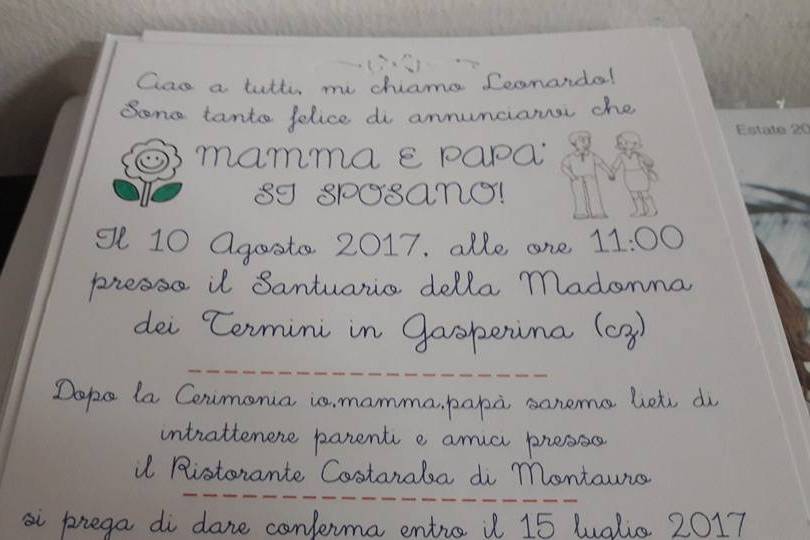 Ciao a tutti, mi chiamo Leonardo!
Sono tanto felice di annunciarvi che
MAMMA E PAPA'
SI SPOSANO!
Il 10 Agosto 2017, alle ore 11:00
presso il Santuario della Madonna
dei Termini in Gasperina (cz)
Dopo la Cerimonia io,mamma,papà saremo lieti di
intrattenere parenti e amici presso
il Ristorante Costaraba di Montauro
si prega di dare conferma entro il 15 luglio 2017
Estate 20